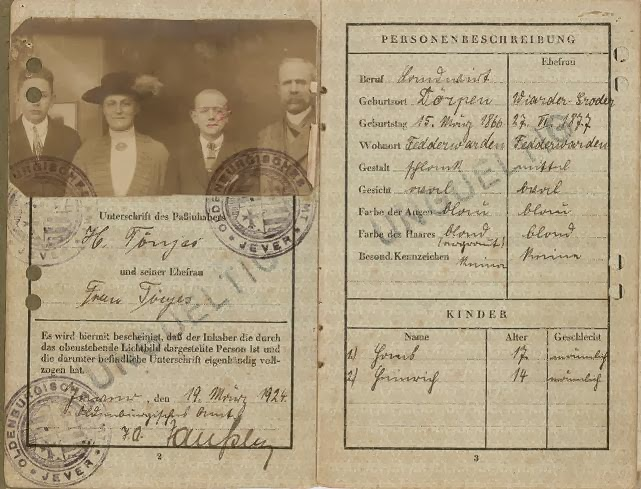 OLDENBURGISCHES AMT
JEVER
Unterschrift des Paßinhabers
H. Tönjes
und seiner Ehefrau
Frau Tönjes
Es wird hiermit bescheinigt, daß der Inhaber die durch
das obenstehende Lichtbild dargestellte Person ist und
die darunter befindliche Unterschrift eigenhändig voll-
zogen hat.
Jever, den 19. März 1924.
Oldenburgisches Amt
OLDENBURGISCHES
JEVER
2
UNGUELTIG
PERSONENBESCHREIBUNG
Ehefrau
Beruf Landwirt
Geburtsort Dörpen Wiarder-Groden
Geburtstag 15. März 1860 27. 1877
Wohnort Fedderwarden Fedderwarden
Gestalt schlank mittel
Gesicht oval oval
Farbe der Augen blau blau
Farbe des Haares blond blond
(ergraut)
Besond. Kennzeichen keine keine
UNGUELTIG
KINDER
Name Alter Geschlecht
1) 17 männlich
2) Heinrich 14 männlich
3